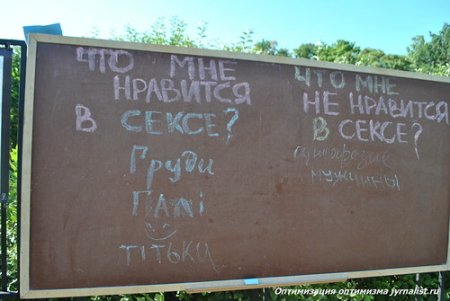 ЧТО МНЕ
НРАВИТСЯ
В СЕКСЕ?
Груди
Папі
тітьки
ЧТО МНЕ
НЕ НРАВИТСЯ
В СЕКСЕ?
мужчины
Оптимизация оптимизма jyrnalist.ru